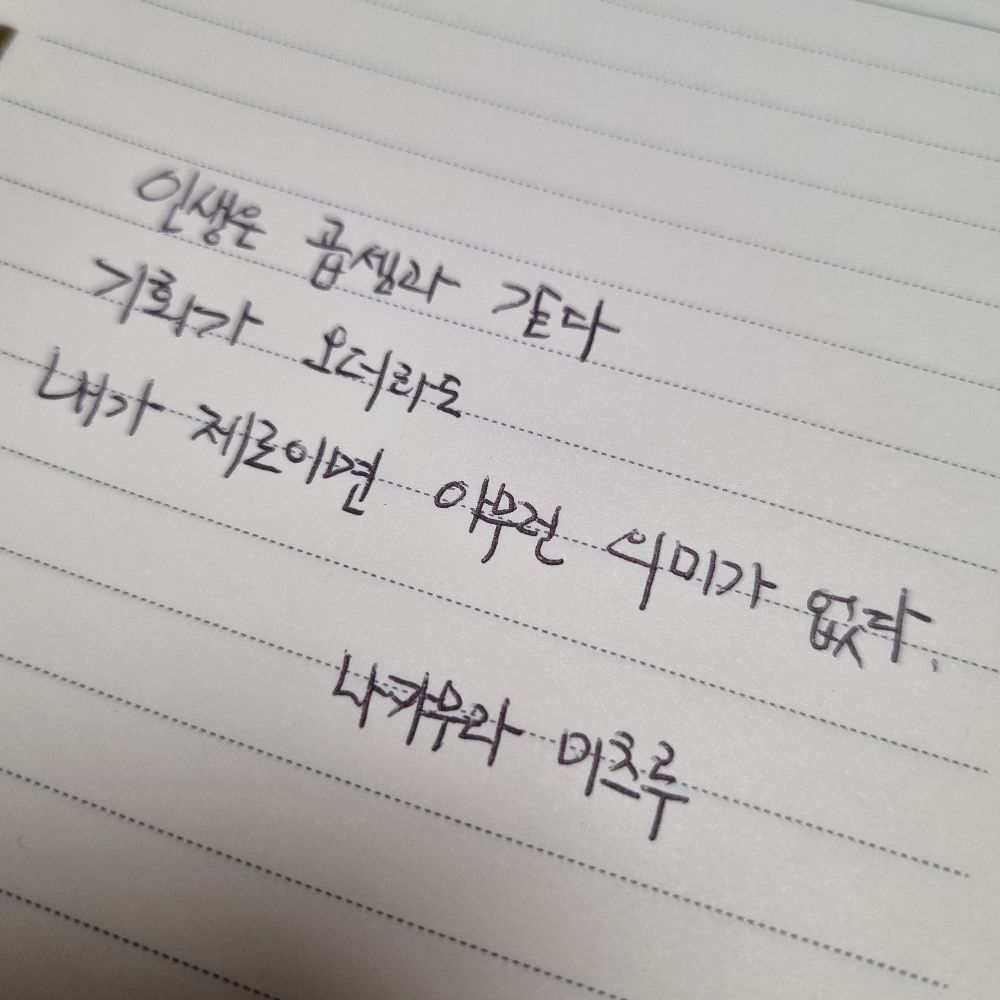 인생은 곱셈과 같다
기회가 오더라도
내가 제로이면 아무런 의미가 없다.
나카무라 미츠루